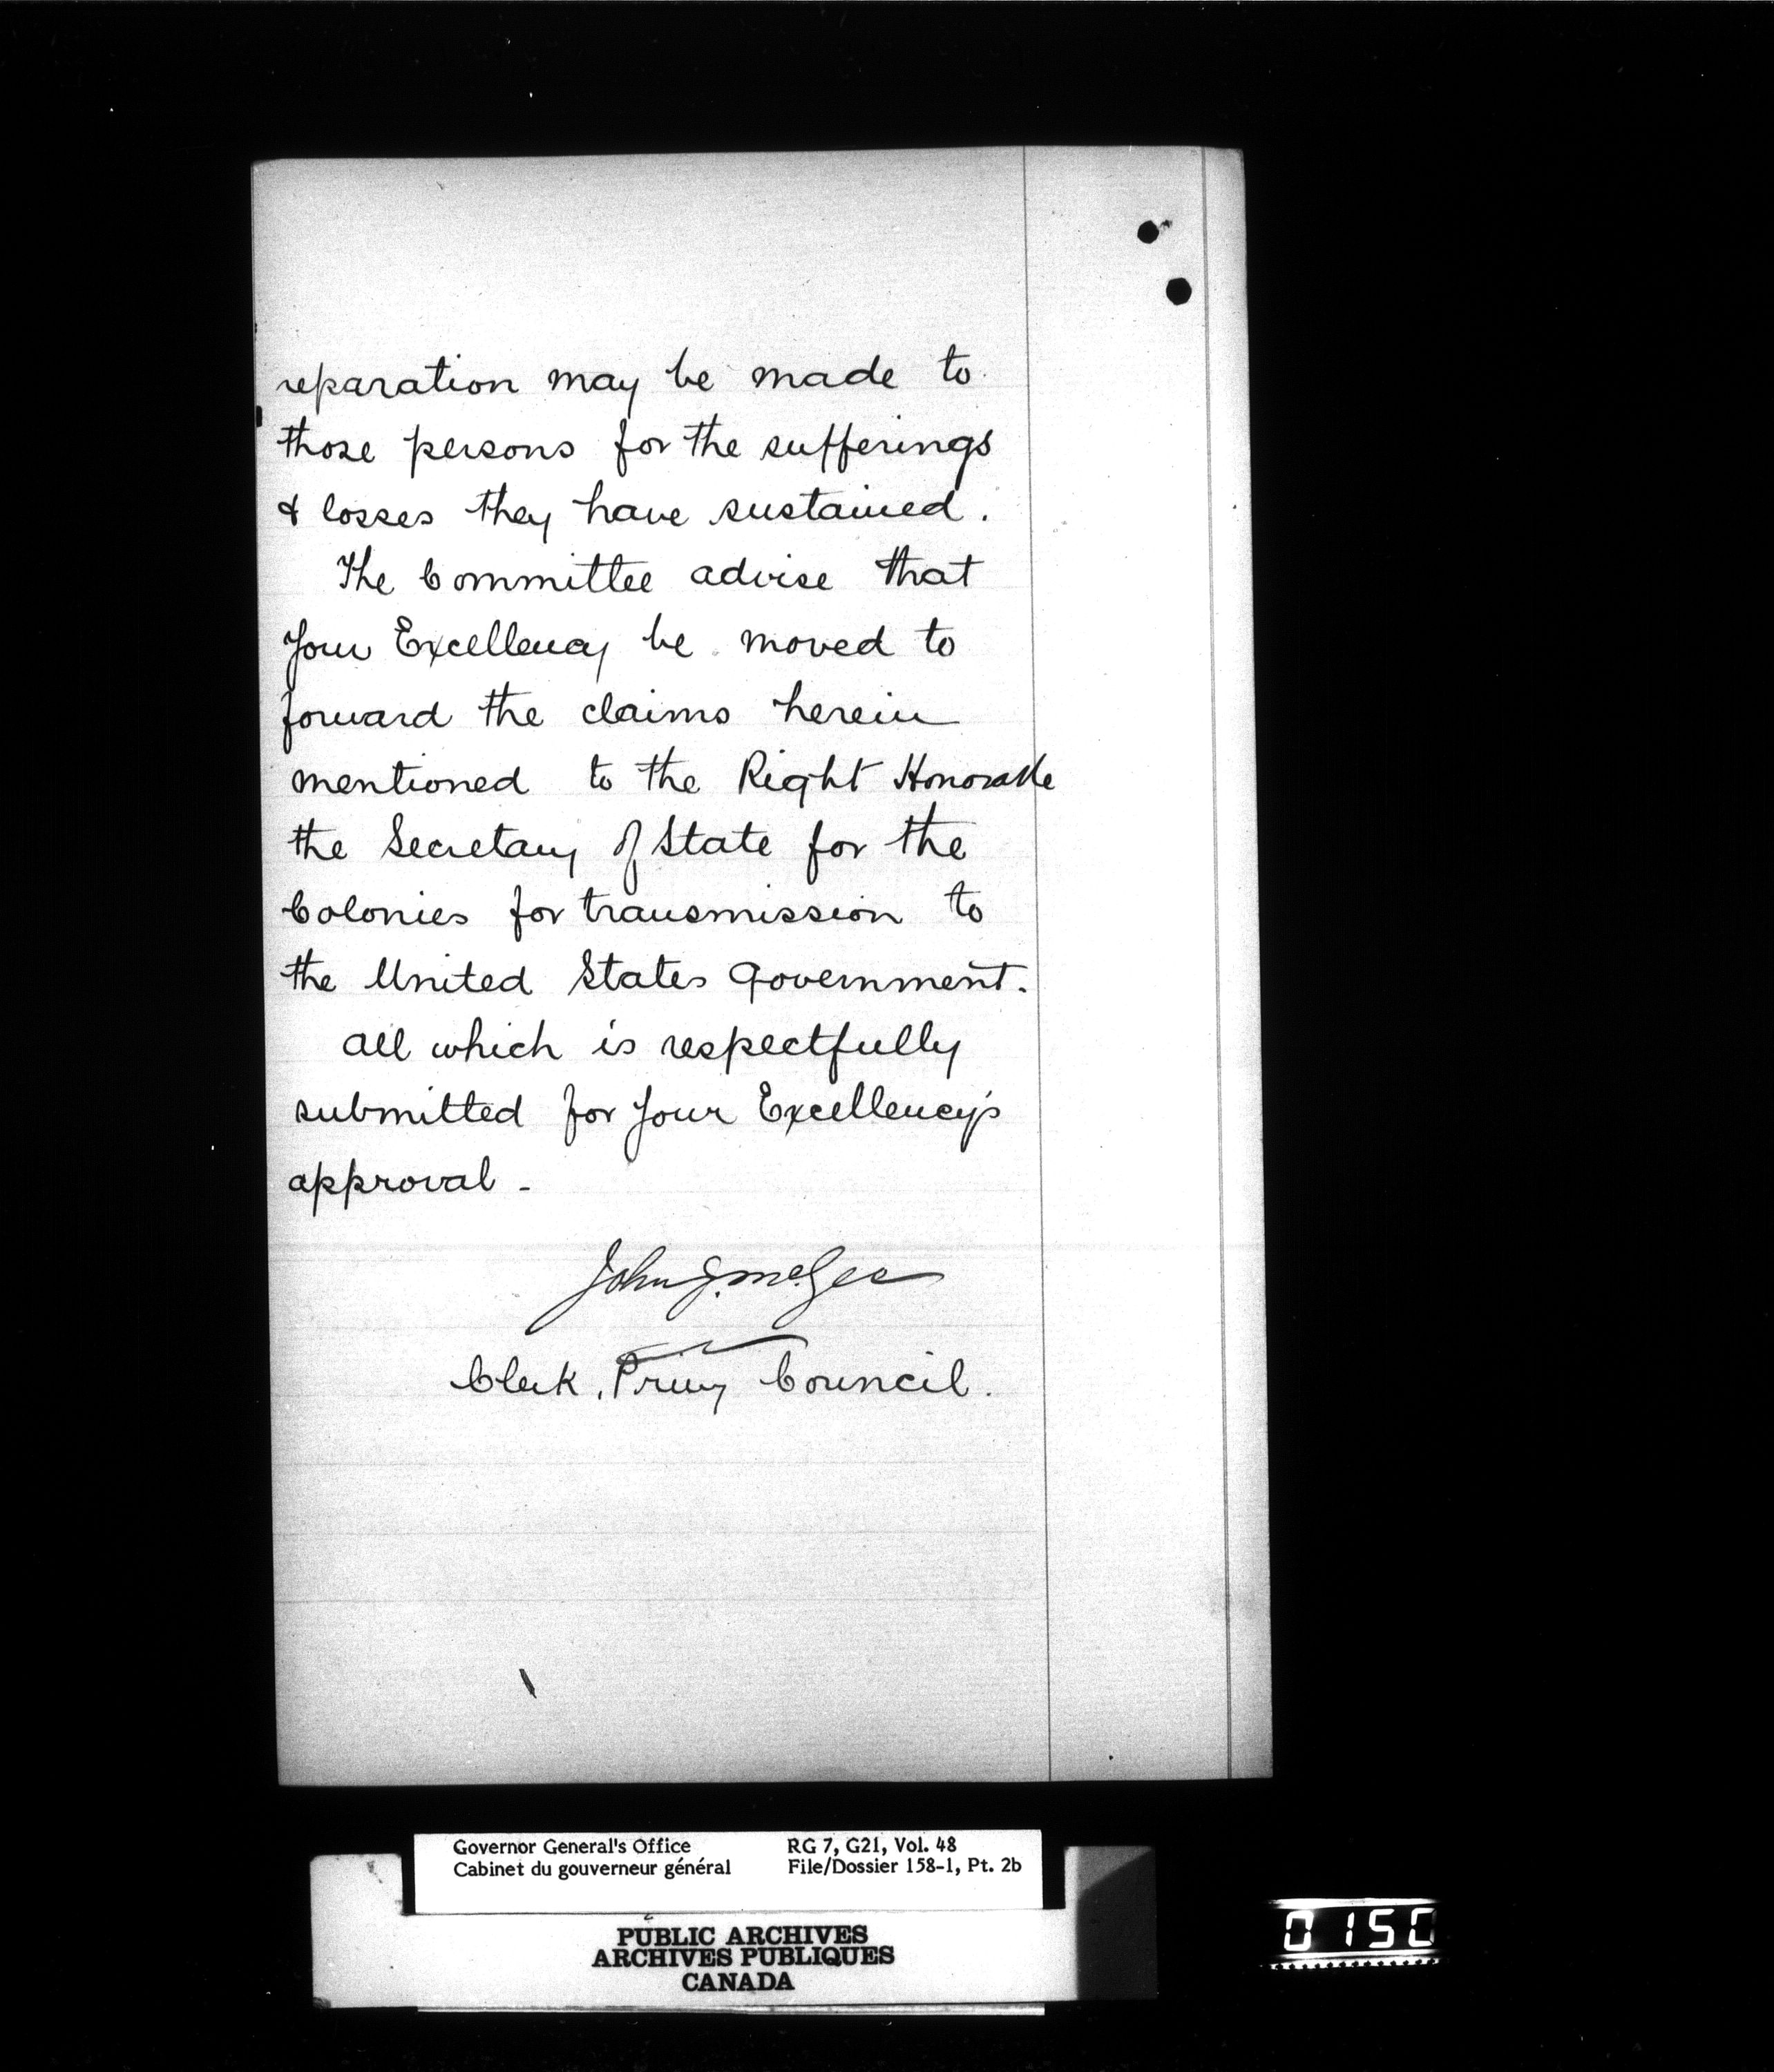 reparation may be made to
those persons for the sufferings
& losses they have sustained.
The Committee advise that
Your Excellency be moved to
forward the claims herein
mentioned to the Right Honorable
the Secretary of State for the
Colonies for transmission to
the United States Government.
All which is respectfully
submitted for Your Excellency's
approval -
John J. McGee
Clerk, Privy Council.
Governor General's Office RG 7, G21, Vol. 48
Cabinet du gouverneur général File/Dossier 158-1, Pt. 2b
PUBLIC ARCHIVES
ARCHIVES PUBLIQUES
CANADA
0150